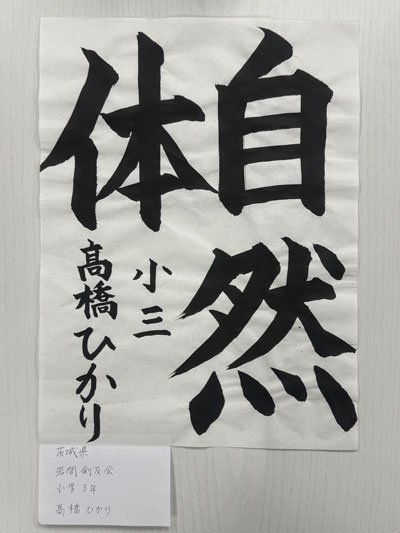 自然
体
小三
髙橋ひかり
茨城県
岩間剣友会
小学3年
髙橋 ひかり